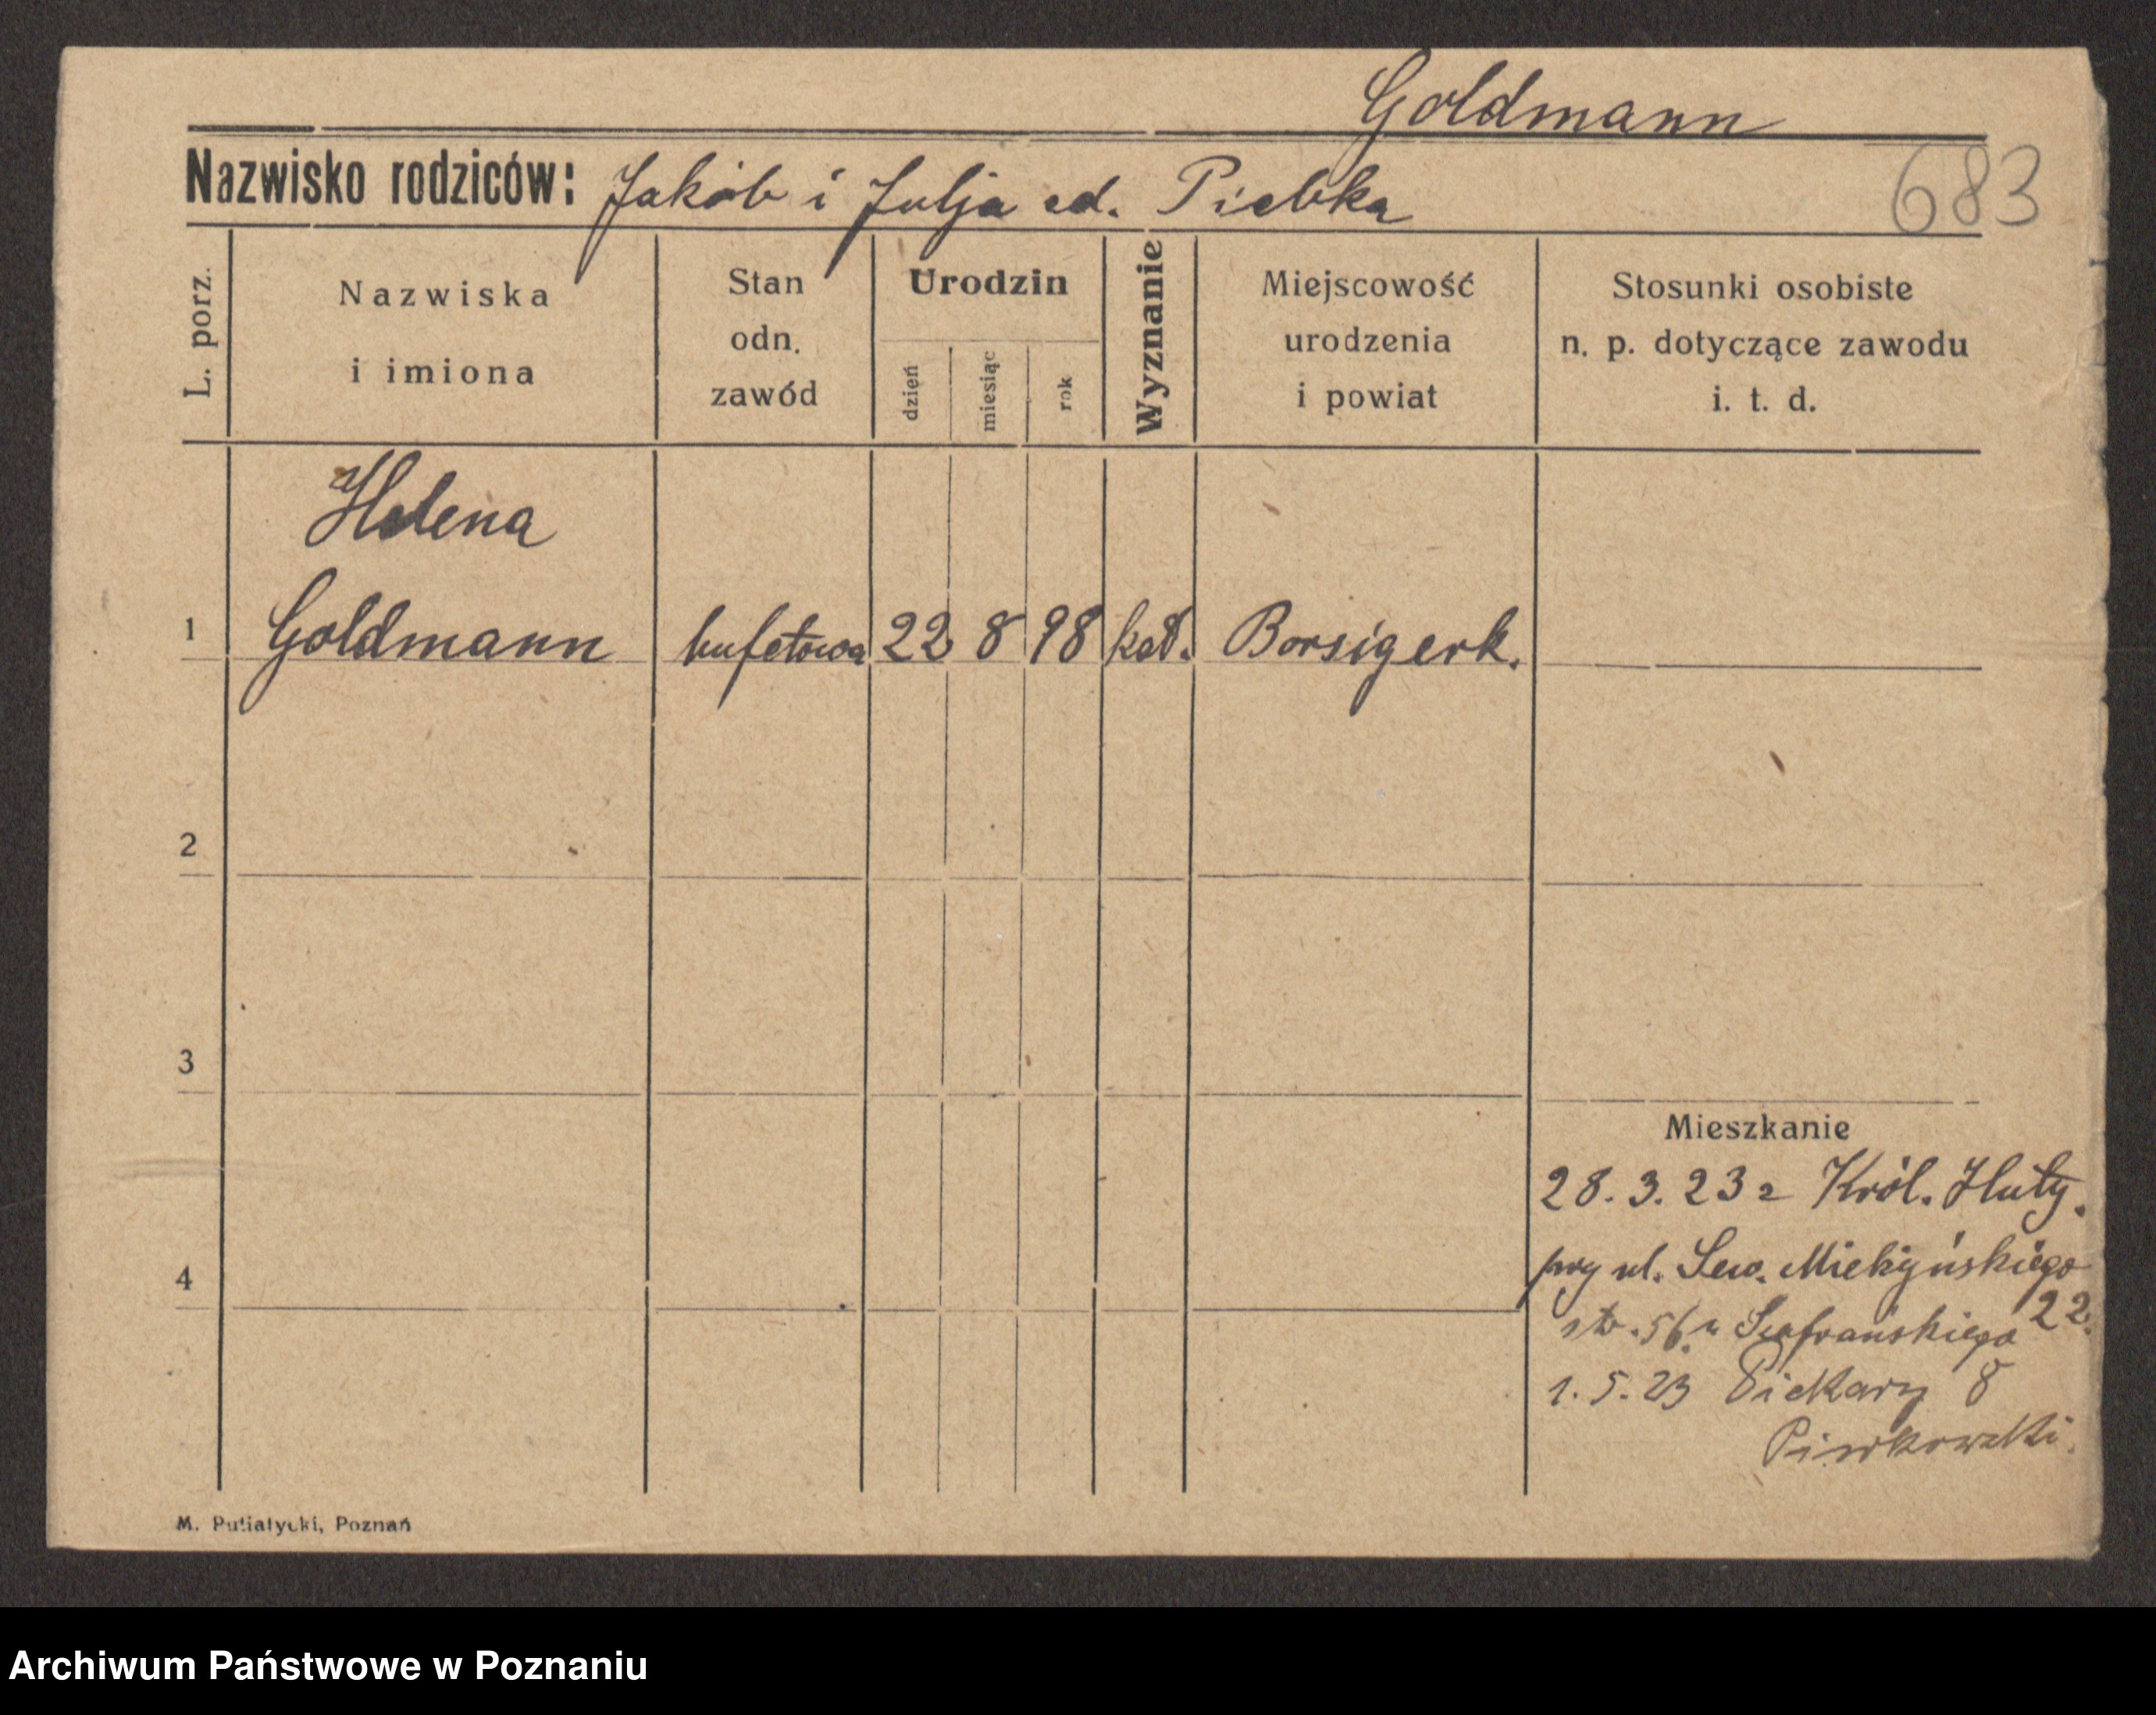 Goldmann
Nazwisko rodziców: Jakób i Julja
683
L. porz.
Nazwiska
i imiona
Stan
odn.
zawód
Urodzin
dzień
miesiąc
rok
Wyznanie
Miejscowość
urodzenia
i powiat
Stosunki osobiste
n. p. dotyczące zawodu
i. t. d.
Helena
1 Goldmann bufetowa 22 8 98 kat. Borsigerk.
2
3
Mieszkanie
28. 3. 23 z Król. Huty.
4
przy ul. Sew. Mielżyńskiego
22.
1. 5. 23 Piekary 8
M. Putiatycki, Poznań
Archiwum Państwowe w Poznaniu